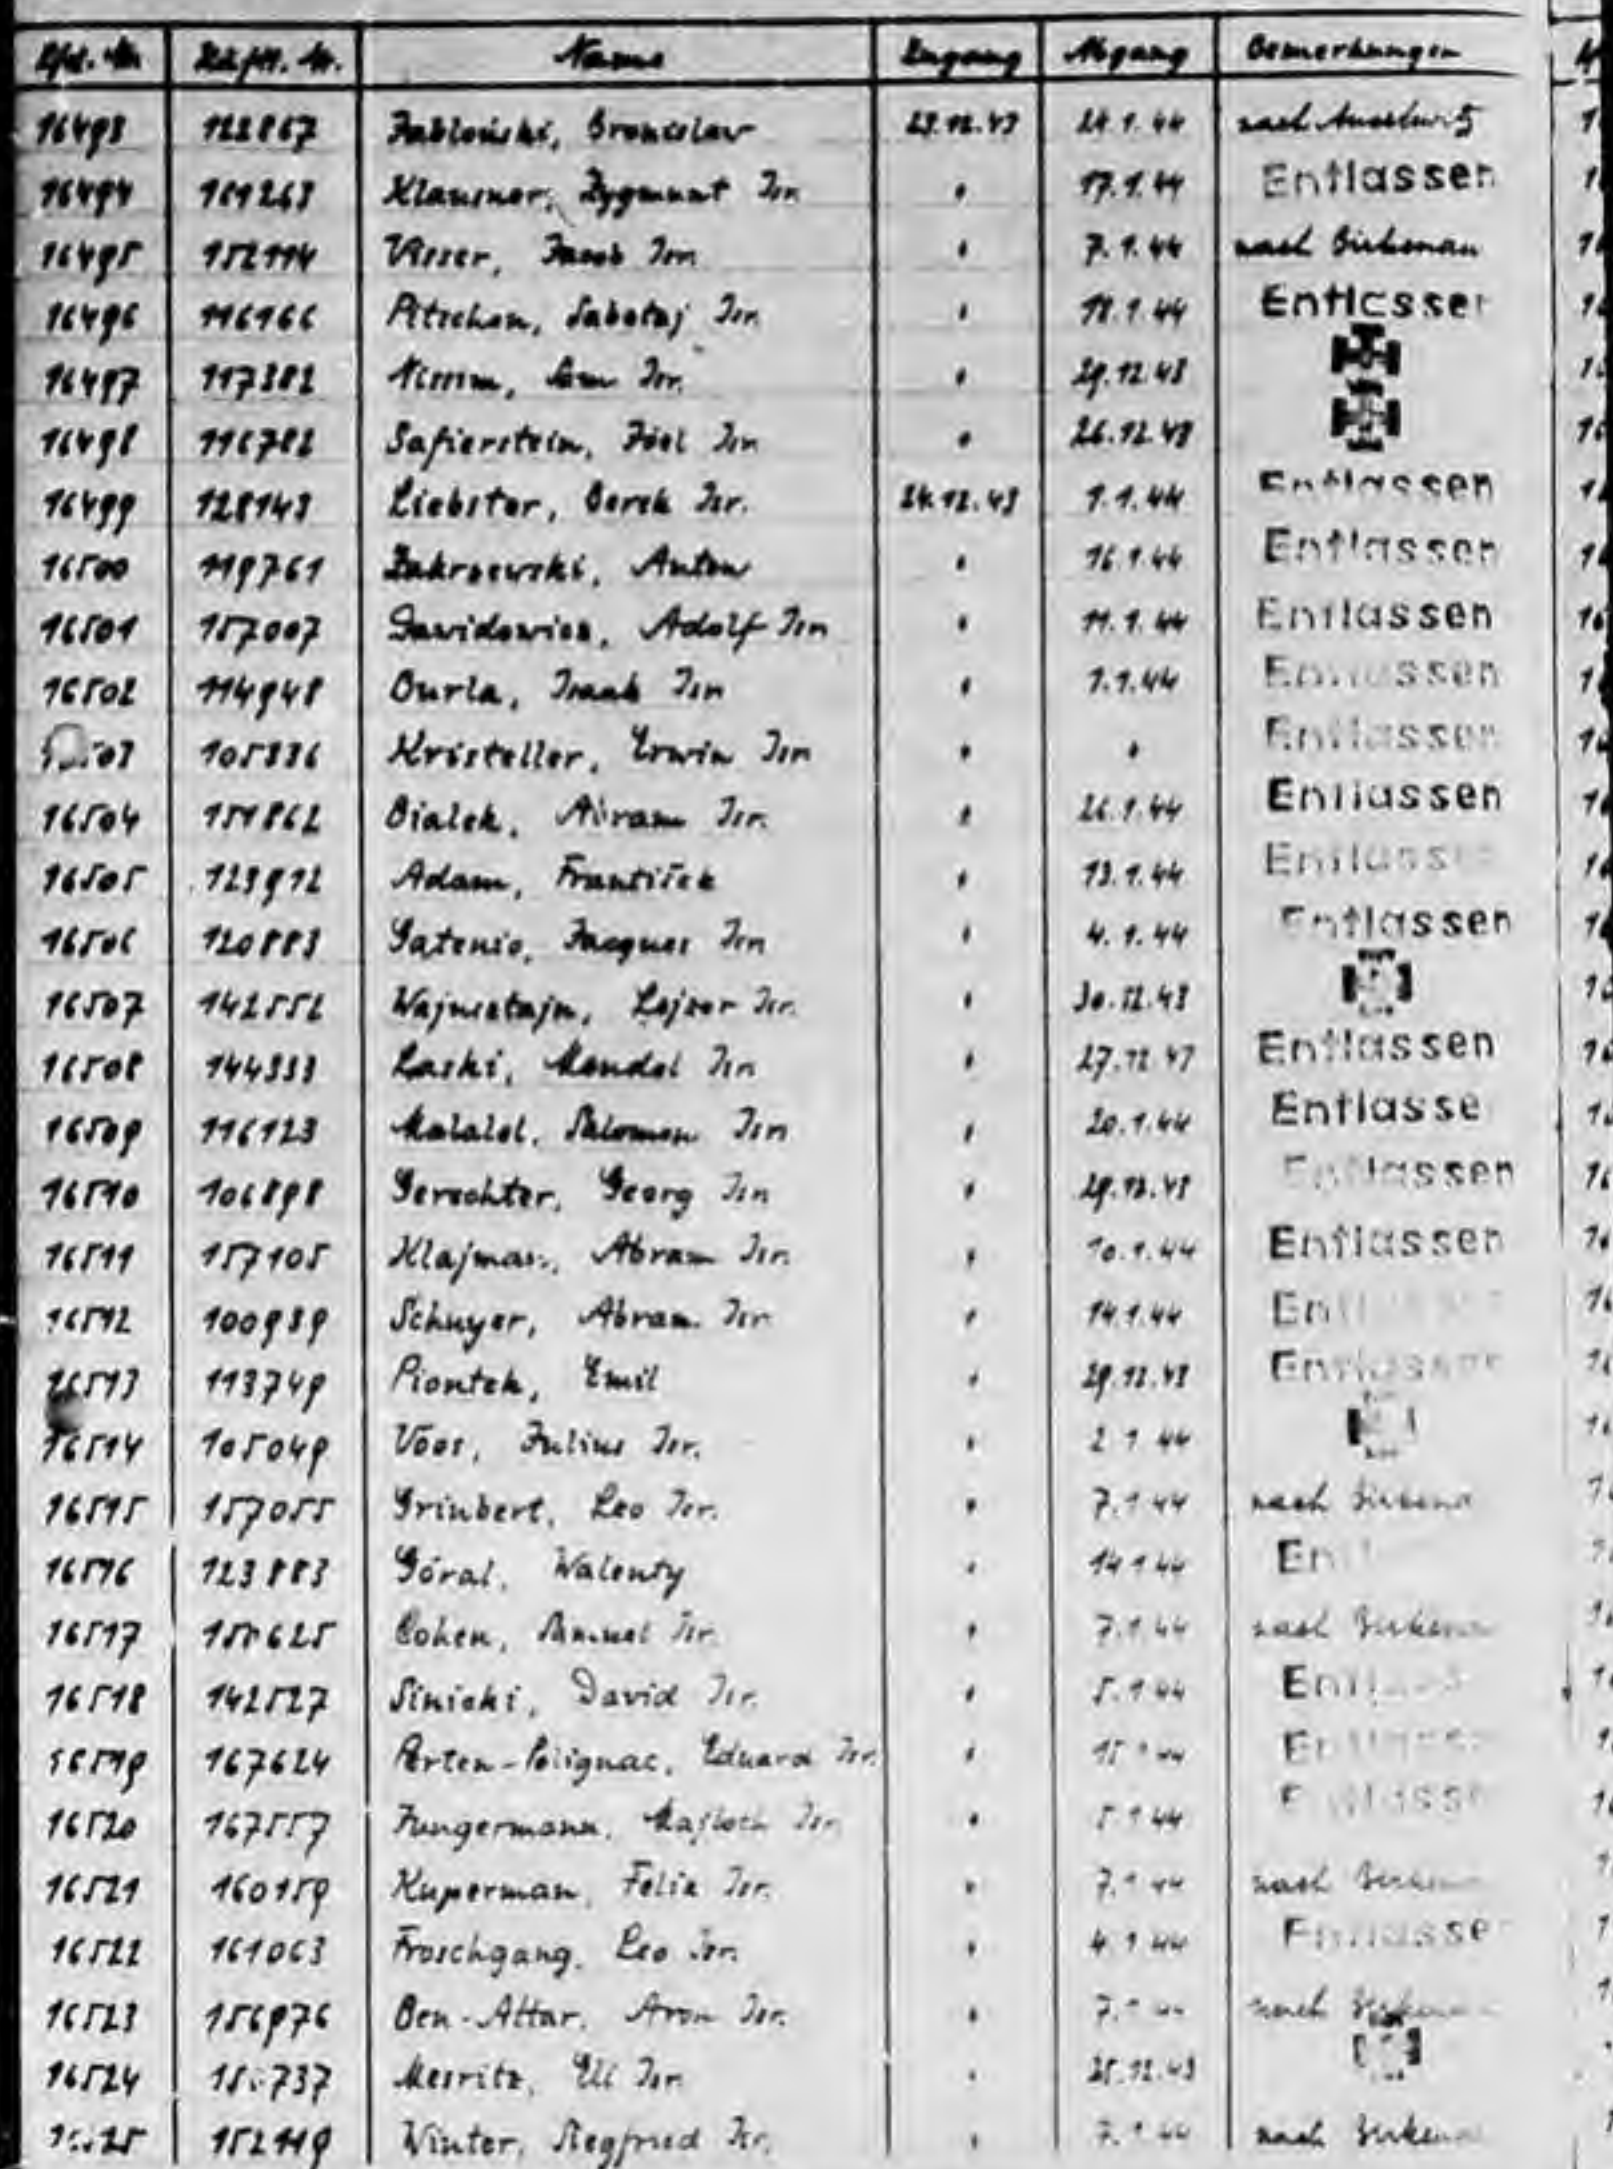 Lfd. Nr. Häftl. Nr. Name Zugang Abgang Bemerkungen
16493 122867 Jabloński, Bronislav 23.12.43 24.1.44 nach Auschwitz
16494 161263 Klausner, Zygmunt Isr. " 17.1.44 Entlassen
16495 152114 Visser, Jacob Isr. " 7.1.44 nach Birkenau
16496 116166 Pitschon, Sabetaj Isr. " 18.1.44 Entlassen
16497 117382 Nissim, Sam Isr. " 29.12.43
16498 116782 Safierstein, Joel Isr. " 26.12.43
16499 128143 Liebster, Berek Isr. 24.12.43 1.1.44 Entlassen
16500 119761 Zakrzewski, Anton " 16.1.44 Entlassen
16501 157007 Dawidowicz, Adolf Isr. " 11.1.44 Entlassen
16502 114948 Burla, Isaak Isr. " 1.1.44 Entlassen
16503 105336 Kristeller, Erwin Isr. " " Entlassen
16504 151862 Bialek, Abram Isr. " 26.1.44 Entlassen
16505 123912 Adam, František " 13.1.44 Entlassen
16506 120883 Gatenio, Jacques Isr. " 4.1.44 Entlassen
16507 142552 Wajnsztajn, Lejzor Isr. " 30.12.43
16508 144333 Laski, Mendel Isr. " 27.12.43 Entlassen
16509 116123 Malalel, Salomon Isr. " 20.1.44 Entlasse
16510 106898 Gerechter, Georg Isr. " 29.12.43 Entlassen
16511 157105 Klajman, Abram Isr. " 10.1.44 Entlassen
16512 100939 Schuyer, Abram Isr. " 14.1.44 Entl
16513 113749 Piontek, Emil " 29.12.43 Entlassen
16514 105049 Voos, Julius Isr. " 2.1.44
16515 157055 Grinbert, Leo Isr. " 7.1.44 nach Birkena
16516 123883 Góral, Walenty " 14.1.44 Ent
16517 150625 Cohen, Samuel Isr. " 7.1.44 nach Birkenau
16518 142527 Sinicki, David Isr. " 5.1.44 Entl
16519 167624 Perten-Polignac, Eduard Isr. " 15.1.44 Entlasse
16520 167557 Jungermann, Isr. " 5.1.44 Entlasse
16521 160159 Kuperman, Felix Isr. " 7.1.44 nach Birkenau
16522 161063 Froschgang, Leo Isr. " 4.1.44 Entlasse
16523 156976 Ben-Attar, Aron Isr. " 7.1.44 nach Birkenau
16524 Mesritz, Eli Isr. " 25.12.43
16525 152119 Winter, Siegfried Isr. " 7.1.44 nach Birkena